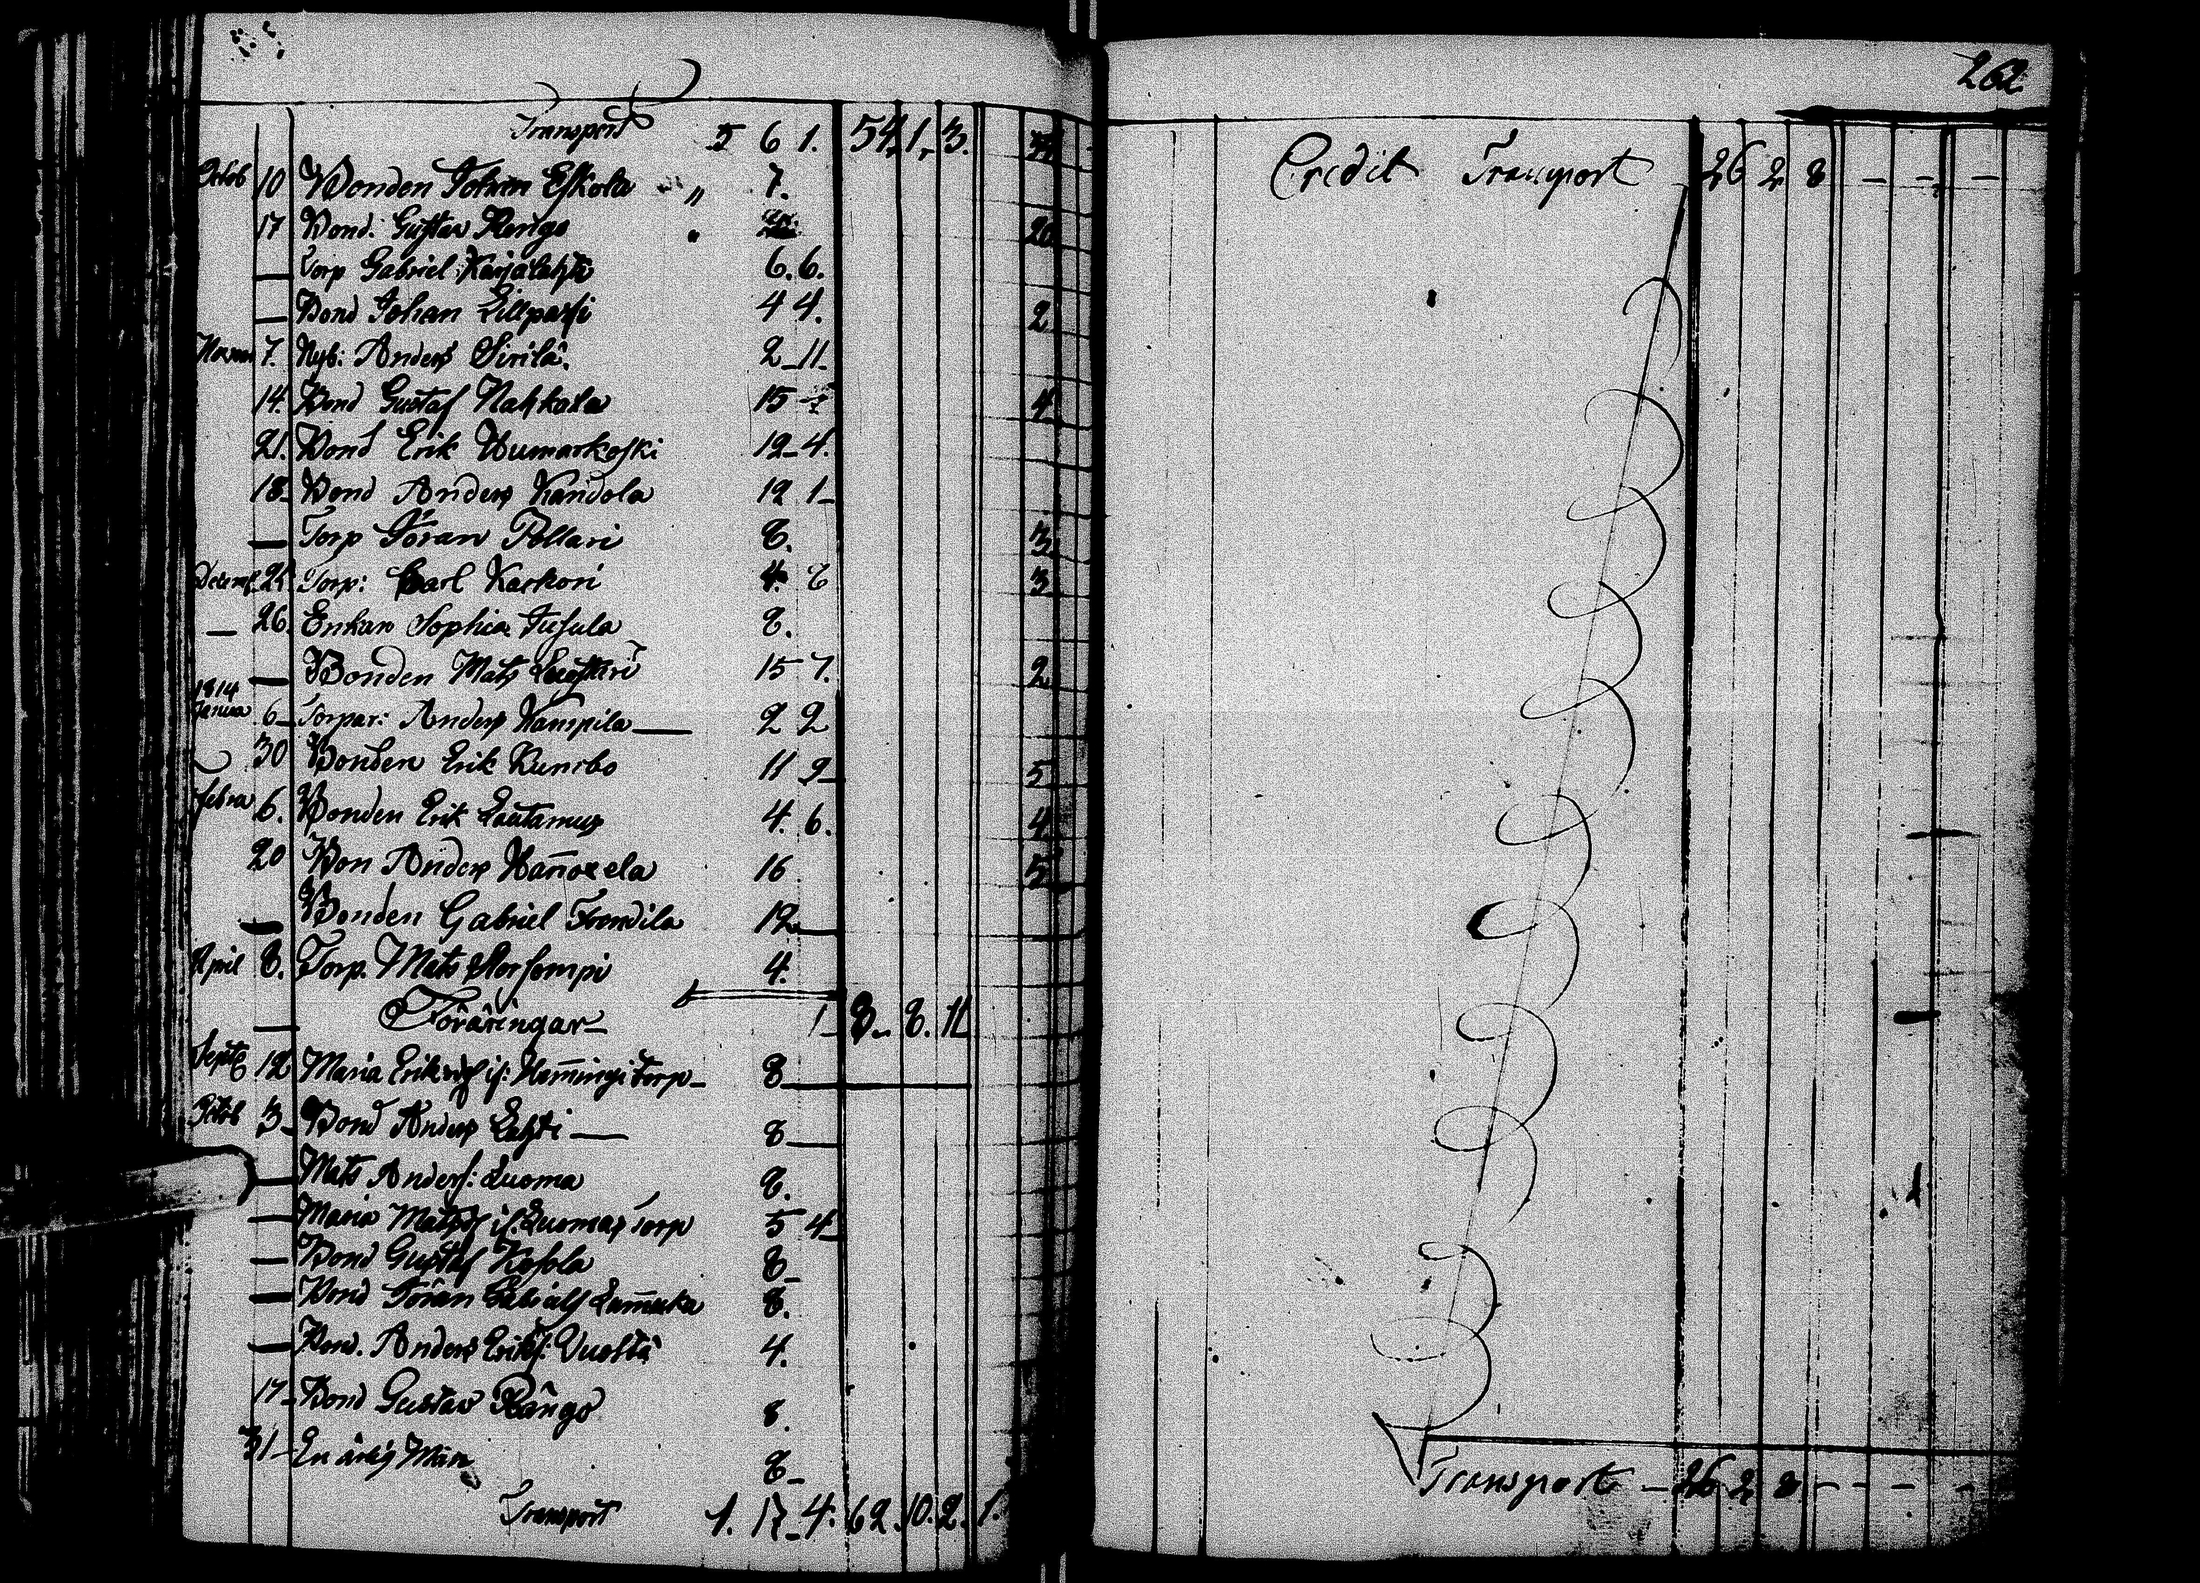 Transport 5 6 1. 54. 1. 3.
Octob 10 Bonden Johan Eskola " 7.
17 Bond: Gustav Rengo "
— Torp Gabriel Karjalahti 6. 6.
— Bond Johan Lillpassi 4 4. 2
Novem 7. Nyb: Anders Sirilä. 2 11
14. Bond Gustaf Nahkala 15 4
21. Bond Erik Wumarkoski 12 4.
18 Bond Anders Kandola 12 1
— Torp Jöran Pollari 8. 3
Decemb 21 Torp: Carl Karkori 4. 8 3
— 26. Enkan Sophia Jusula 8.
— Bonden Mats 15 7. 2
1814
Janua 6 Torpar: Anders Kampila 2 2
30 Bonden Erik Runsbo 11 9 5
Febru 6. Bonden Erik Lautamus 4. 6. 4
20 Bon Anders Hanoxela 16 5
— Bonden Gabriel Frondila 12
April 8. Torp. Mats Korsompi 4.
— Föräringar 1 8. 8. 11
Septe 12 Maria Eriksd i: Hemmingi torp 8
Octob 3 Bond Anders Lahti 8
— Mats Anders: Luoma 8.
— Maria Matsd i Luomas Torp 5 4
— Bond Gustaf Kessla 8
— Bond Jöran Gabriels Lammuka 8.
— Bond. Anders Eriks: Vuolta 4.
17 Bond Gustav Rängo 8.
31 En ärlig Man 8
Transport 1. 17 4. 62. 10. 2. 1.
262.
Credit Transport 26 2 8 — — —
Transport — 26 2 8 — — — —